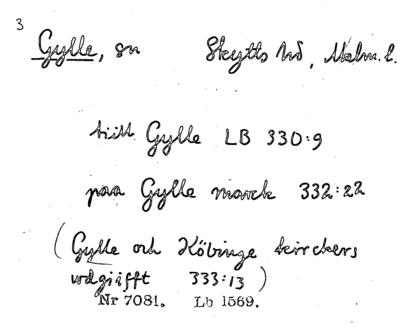 3
Gylle, sn Skytts hd, Malm. l.
till Gylle LB 330:9
paa Gylle marck 332:22
(Gylle och Köbinge kirckers
vdgiifft 333:13)
Nr 7081. Lb 1569.